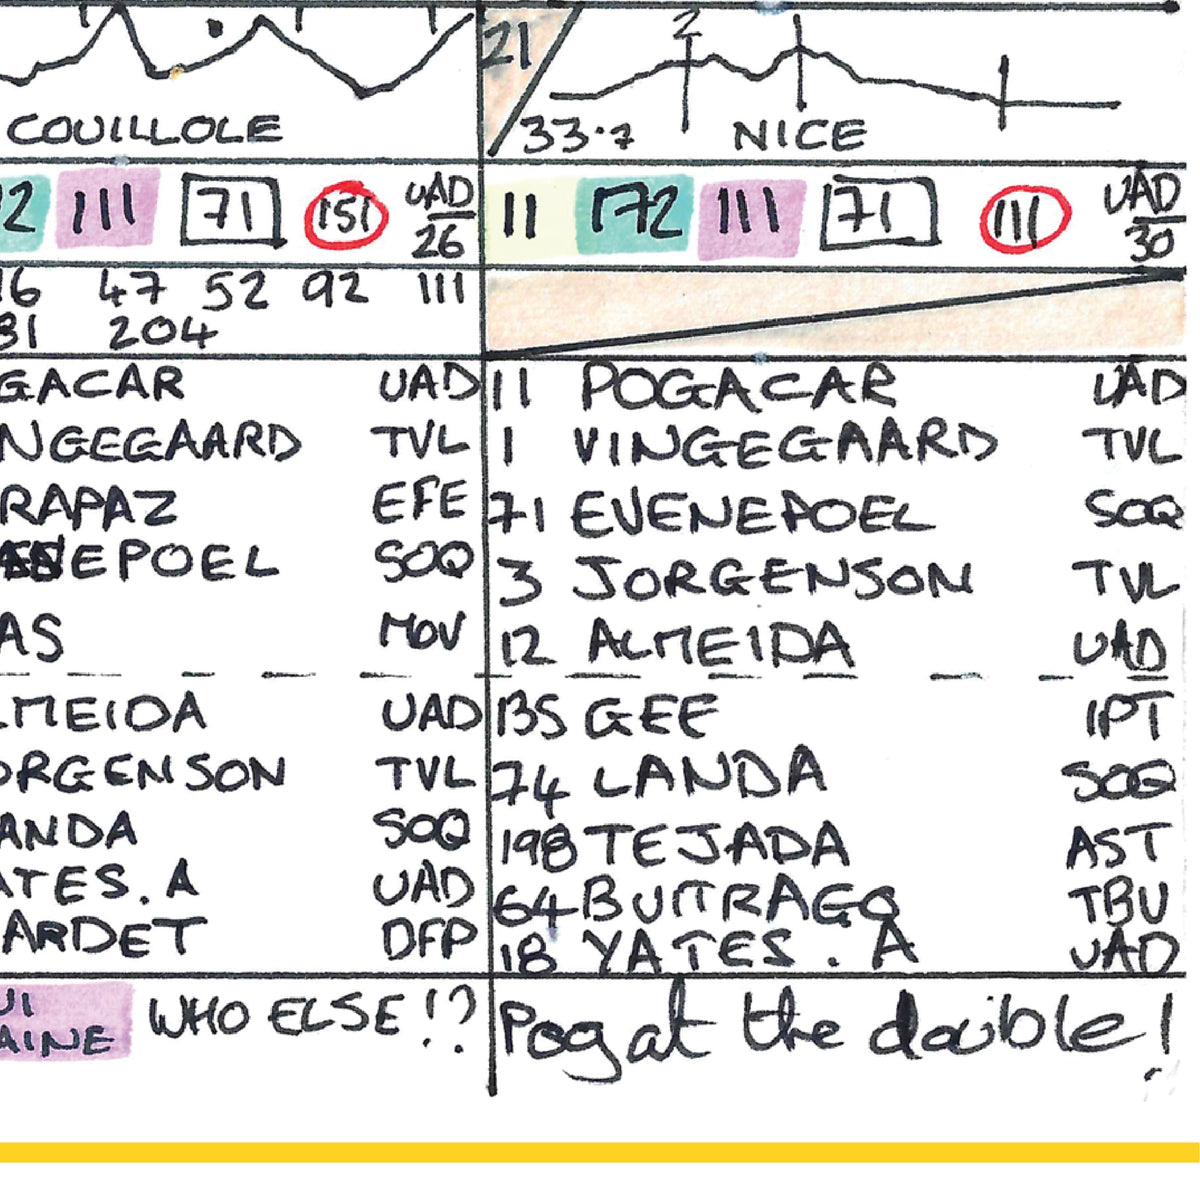 COUILLOLE
2 111 71 151 UAD
26
16 47 52 92 111
81 204
GACAR UAD
NGEGAARD TVL
RAPAZ EFE
EPOEL SOQ
AS MOV
LMEIDA UAD
ORGENSON TVL
ANDA SOQ
ATES. A UAD
ARDET DFP
UI
AINE
WHO ELSE!?
21
2
33.7 NICE
11 172 111 71 111 UAD
30
11 POGACAR UAD
1 VINGEGAARD TVL
71 EVENEPOEL SOQ
3 JORGENSON TVL
12 ALMEIDA UAD
135 GEE IPT
74 LANDA SOQ
198 TEJADA AST
64 BUITRAGO TBV
18 YATES. A UAD
Pog at the double!